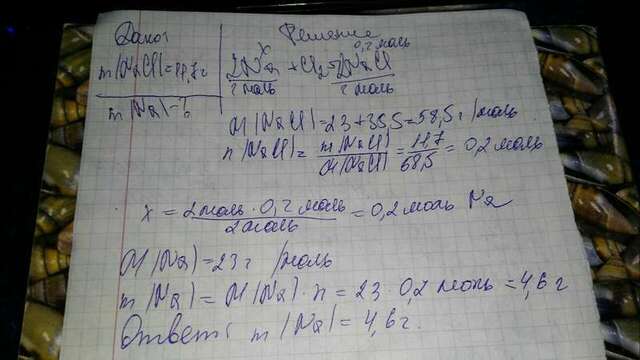 Дано: Решение
x 0,2 моль
m(NaCl)=11,7г 2Na + Cl2 = 2NaCl
2 моль 2 моль
m(Na)-?
M(NaCl)=23+35,5=58,5 г/моль
n(NaCl)= m(NaCl)/M(NaCl) = 11,7/58,5 = 0,2 моль
x = 2 моль · 0,2 моль/2 моль = 0,2 моль Na
M(Na)=23 г/моль
m(Na) = M(Na) · n = 23 · 0,2 моль = 4,6 г
Ответ: m(Na) = 4,6 г.